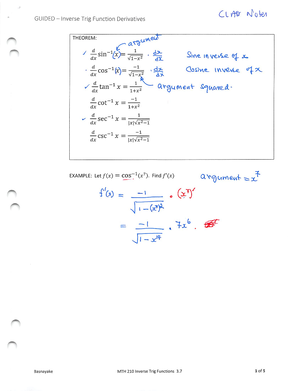 GUIDED – Inverse Trig Function Derivatives
CLASS Notes
THEOREM:
argument
✓ d/dx sin⁻¹(x) = 1/√(1−x²) · dx/dx Sine inverse of x
· d/dx cos⁻¹(x) = −1/√(1−x²) · dx/dx Cosine inverse of x
✓ d/dx tan⁻¹ x = 1/(1+x²) argument squared.
d/dx cot⁻¹ x = −1/(1+x²)
✓ d/dx sec⁻¹ x = 1/(|x|√(x²−1))
d/dx csc⁻¹ x = −1/(|x|√(x²−1))
EXAMPLE: Let f(x) = cos⁻¹(x⁷). Find f'(x)
argument = x⁷
f'(x) = −1/√(1−(x⁷)²) · (x⁷)'
= −1/√(1−x¹⁴) · 7x⁶
Rasnayake MTH 210 Inverse Trig Functions 3.7